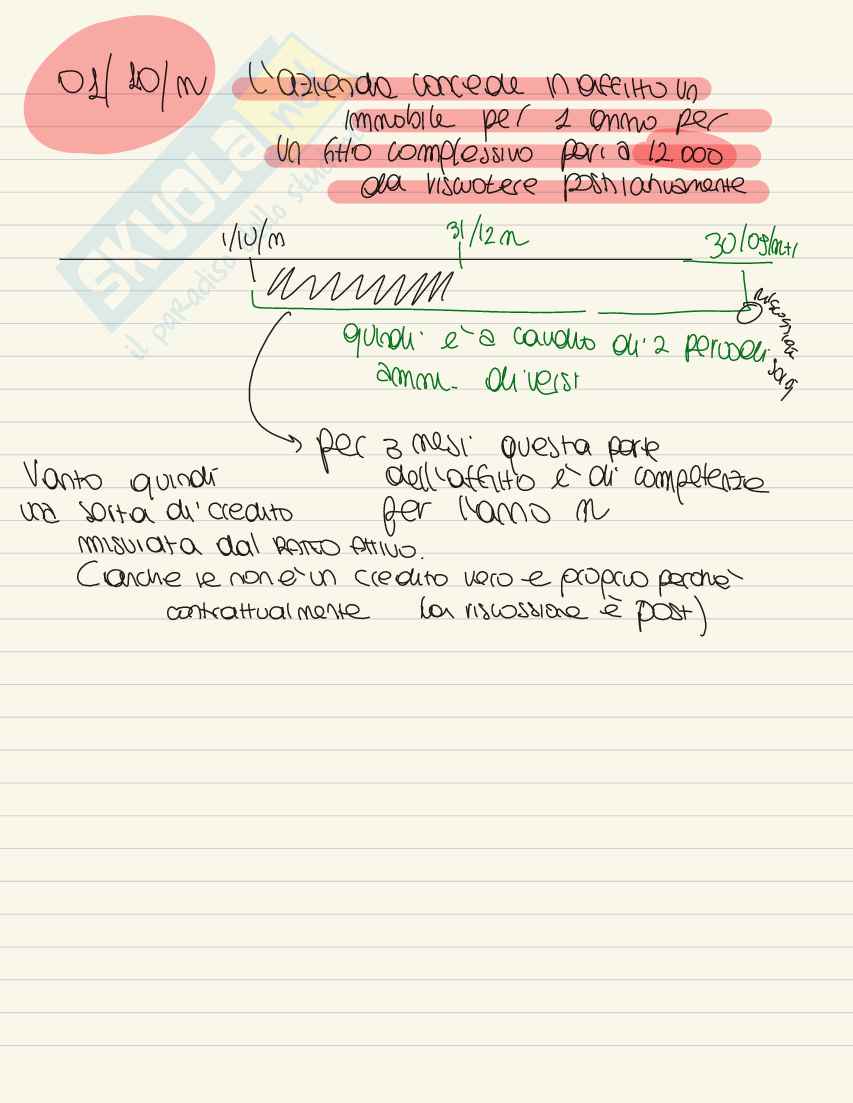 01/10/n L'azienda concede in affitto un
immobile per 1 anno per
un fitto complessivo pari a 12.000
da riscuotere posticipatamente
1/10/n 31/12 n 30/09/n+1
riscossione
quindi è a cavallo di 2 periodi
amm. diversi
per 3 mesi questa parte
Vanto quindi dell'affitto è di competenza
una sorta di credito per l'anno n
misurata dal RATEO ATTIVO.
(anche se non è un credito vero e proprio perchè
contrattualmente la riscossione è post)
SKUOLA.net
il paradiso dello studente